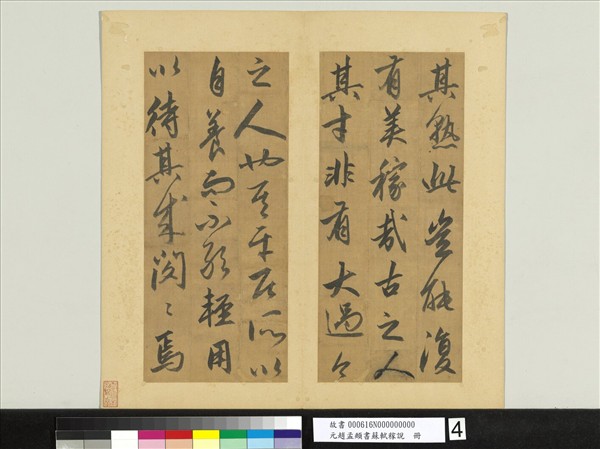 其熟此豈能復
有美稼哉古之人
其才非有大過今
之人也其平居所以
自養而不敢輕用
以待其成閔〻焉
故書 000616N000000000
元趙孟頫書蘇軾稼說 冊
4